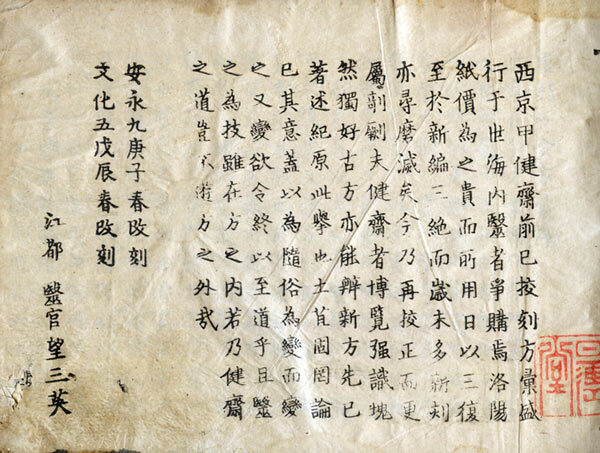 西京甲健齋前已挍刻方彙盛
行于世海內毉者爭購焉洛陽
紙價為之貴而所用日以三復
至於新編三絶而歲未多新刻
亦尋磨滅矣今乃再挍正而更
屬剞劂夫健齋者博覧强識塊
然獨好古方亦能辯新方先已
著述紀原此舉也土苴罔論
已其意蓋以為隨俗為變而變
之又變欲令終以至道乎且毉
之為技雖在方之內若乃健齋
之道豈不遊方之外哉
安永九庚子春改刻
文化五戊辰春改刻
江都 毉官望三英